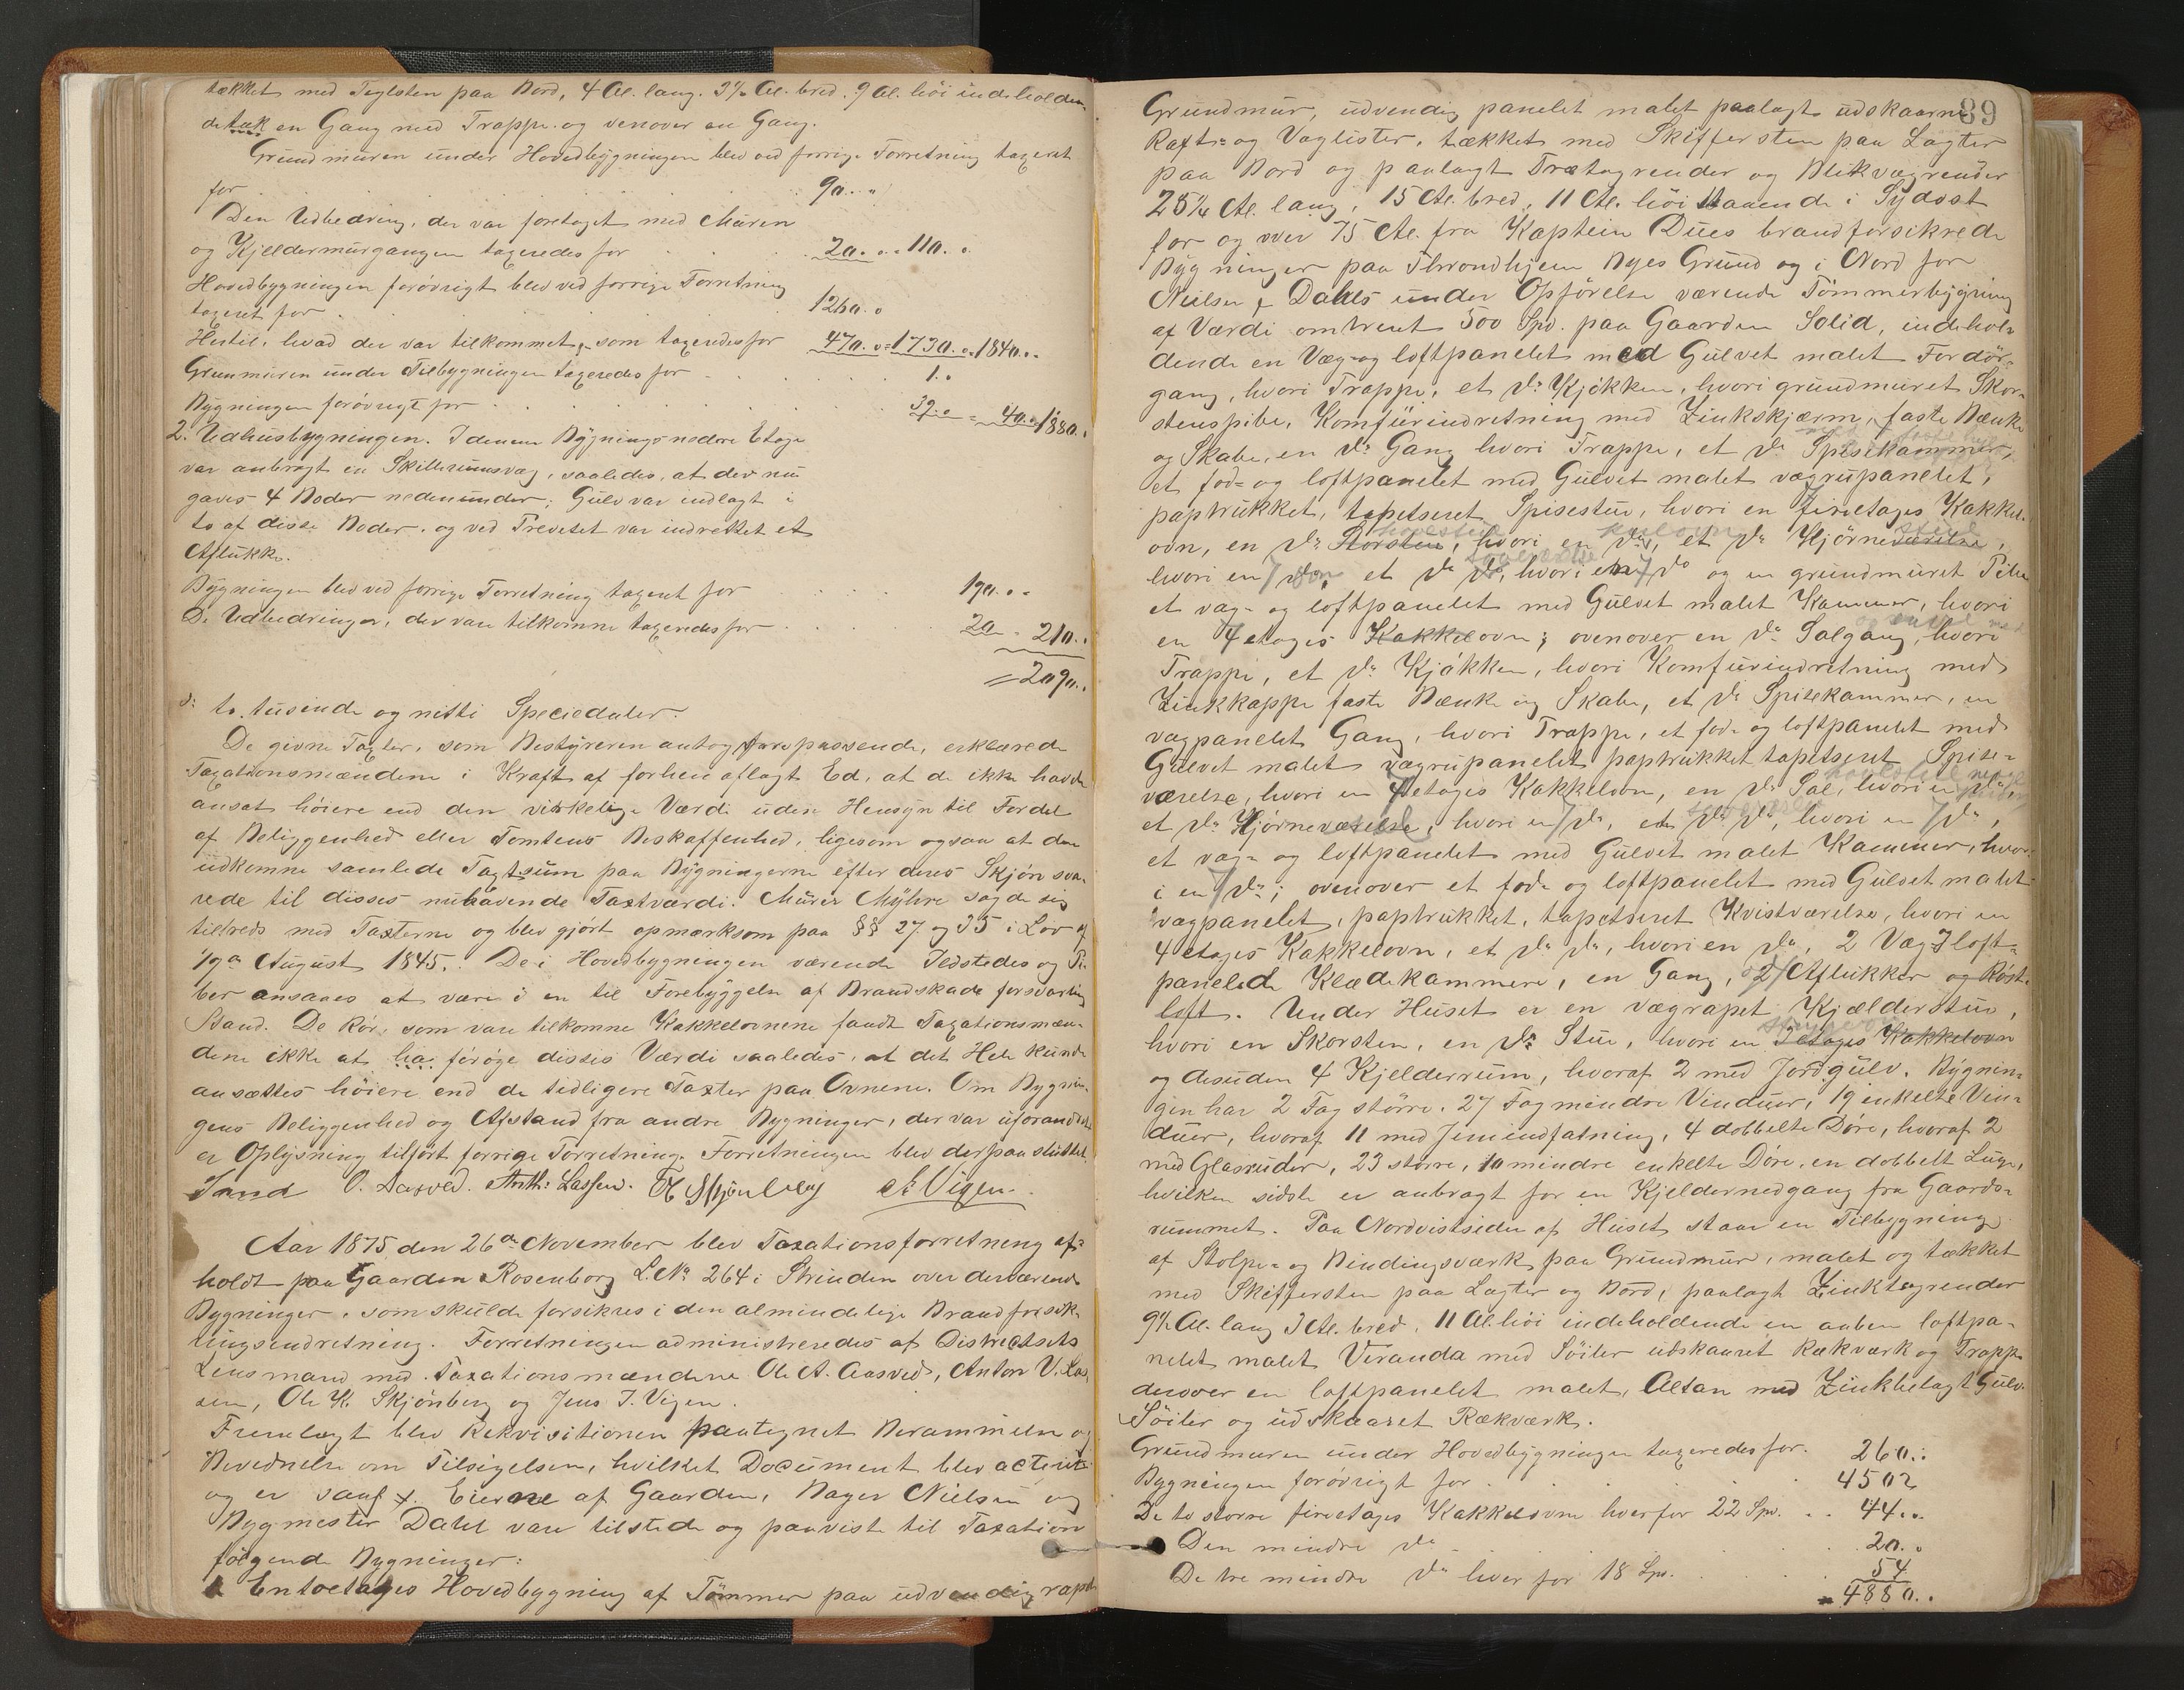 tækket med Teglsten paa Bord, 4 Al. lang. 3½ Al. bred. 9 Al. höi indeholden
detak en Gang med Trappe og ovenover en Gang.
Grundmuren under Hovedbygningen blev ved forrige Forretning taxeret
for . . . 90. "
Den Udbedring, der var foretaget med Muren
og Kjeldermurgangen taxeredes for . . . 20. " 110. "
Hovedbygningen forövrigt blev ved forrige Forretning
taxeret for . . . 1260. "
Hertil, hvad der var tilkommet, som taxeredes for 470. " = 1730. " 1840. "
Grunmuren under Tilbygningen taxeredes for . . . 1. "
Bygningen forövrigt for . . . 39. " = 40. " 1880. "
2. Udhusbygningen. I denne Bygnings nedre Etage
var anbragt en Skillerumsvæg, saaledes, at der nu
gaves 4 Boder nedenunder; Gulv var indlagt i
to af disse Boder, og ved Trevetet var indrettet et
Aflukke.
Bygningen blev ved forrige Forretning taxeret for . . . 190. "
De Udbedringer, der vare tilkomne taxeredes for . . . 20 - 210. "
= 2090. "
d: to tusende og nitti Speciedaler.
De givne Taxter, som Bestyreren antog for passende, erklærede
Taxationsmændene i Kraft af forhen aflagt Ed, at de ikke havde
ansat höiere end den virkelige Værdi uden Hensyn til Fordel
af Beliggenhed eller Tomtens Beskaffenhed, ligesom ogsaa at den
udkomne samlede Taxtsum paa Bygningerne efter deres Skjön sva-
rede til disses nuhavende Taxtværdi. Murer Myhre sagde sig
tilfreds med Taxterne og blev gjört opmærksom paa §§ 27 og 35 i Lov af
19de August 1845. De i Hovedbygningen værende Ildsteder og Pi-
ber ansaaes at være i en til Forebyggelse af Brandskade forsvarlig
Stand. De Rör, som vare tilkomne Kakkelovnene fandt Taxationsmæn-
dene ikke at foröge disses Værdi saaledes, at det Hele kunde
ansættes höiere end de tidligere Taxter paa Ovnene. Om Bygnin-
gens Beliggenhed og Afstand fra andre Bygninger, der var uforandret
er Oplysning tilfört forrige Forretning. Forretningen blev derpaa sluttet.
O. Aasved. Anth: Lassen. O K Skjönberg J Vigen
Aar 1875 den 26de November blev Taxationsforretning af-
holdt paa Gaarden Rosenborg L. No 264 i Strinden over derværende
Bygninger, som skulde forsikres i den almindelige Brandforsik-
ringsindretning. Forretningen administreredes af Distrectets
Lensmand med Taxationsmændene Ole A. Aasved, Anton V. Las-
sen, Ole K. Skjönberg og Jens J. Vigen.
Fremlagt blev Rekvisitionen paategnet Berammelse og
Bevidnelse om Tilsigelsen, hvilket Document blev acteret
og er saal. Eierne af Gaarden, Bager Nielsen og
Bygmester Dahl vare tilstede og paaviste til Taxation
fölgende Bygninger:
1. En toetages Hovedbygning af Tömmer paa udvendig rapet
89
Grundmur, udvendig panelet malet paalagt udskaarne
Rafts- og Vaglister, tækket med Skiffersten paa Lægter
paa Bord og paalagt Trætagrender og Blikvægrender
25¼ Al. lang, 15 Al. bred, 11 Al. höi staaende i Sydost
for og over 75 Al. fra Kaptein Dues brandforsikrede
Bygninger paa Throndhjems Byes Grund og i Nord for
Nielsen & Dahls under Opförelse værende Tömmerbygning
af Værdi omtrent 500 Spd. paa Gaarden Solid, indehol-
dende en Væg- og loftpanelet med Gulvet malet Fordör-
gang, hvori Trappe, et do Kjökken, hvori grundmuret Skor-
stenspibe, Komfürindretning med Zinkskjærm, faste Bænke
og Skabe, en do Gang hvori Trappe, et do Spisekammer,
et fod- og loftpanelet med Gulvet malet vægrupanelet,
paptrukket, tapetseret Spisestue, hvori en fireetages Kakkel-
ovn, en do Storstue, hvori en do, et do Hjörneværelse,
hvori en do, et do do, hvori en do og en grundmuret Pibe
et væg- og loftpanelet med Gulvet malet Kammer, hvori
en 4 etages Kakkelovn; ovenover en do Salgang, hvori
Trappe, et do Kjökken, hvori Komfurindretning med
Zinkkappe faste Bænke og Skabe, et do Spisekammer, en
vægpanelet Gang, hvori Trappe, et fod- og loftpanelet med
Gulvet malet vægrupanelet paptrukket tapetseret Spise-
værelse, hvori en 4 etages Kakkelovn, en do Sal, hvori en do,
et do Hjörneværelse, hvori en do, et do do, hvori en do,
et væg- og loftpanelet med Gulvet malet Kammer, hvor-
i en do; ovenover et fod- og loftpanelet med Gulvet malet
vægpanelet, paptrukket, tapetseret Kvistværelse, hvori en
4 etages Kakkelovn, et do do, hvori en do, 2 Væg- & loft-
panelede Klædekammere, en Gang, 2 Aflukker og Röst-
loft. Under Huset er en vægrapet Kjælderstue,
hvori en Skorsten, en do Stue, hvori en 3 etages Kakkelovn
og desuden 4 Kjelderrum, hvoraf 2 med Jordgulv. Bygnin-
gen har 2 Fag större, 27 Fag mindre Vinduer, 19 enkelte Vin-
duer, hvoraf 11 med Jernindfatning, 4 dobbelte Döre, hvoraf 2
med Glasruder, 23 större, 10 mindre enkelte Döre, en dobbelt Luge,
hvilken sidste er anbragt for en Kjeldernedgang fra Gaards-
rummet. Paa Nordvestsiden af Huset staar en Tilbygning
af Stolpe- og Bindingsværk paa Grundmur, malet og tækket
med Skiffersten paa Lægter og Bord, paalagt Zinktagrender
9½ Al. lang 3 Al. bred, 11 Al. höi indeholdende en aaben loftpa-
nelet malet Veranda med Söiler udskaaret Rækværk og Trappe
derover en loftpanelet malet, Altan med Zinkbelagt Gulv
Söiler og udskaaret Rækværk.
Grundmuren under Hovedbygningen taxeredes for. 260. "
Bygningen forövrigt for . . . 4502
De to större fireetages Kakkelovne hver for 22 Spd. . . 44. "
Den mindre do . . . 20. "
De tre mindre do hver for 18 Spd. . . . 54
= 4880. "